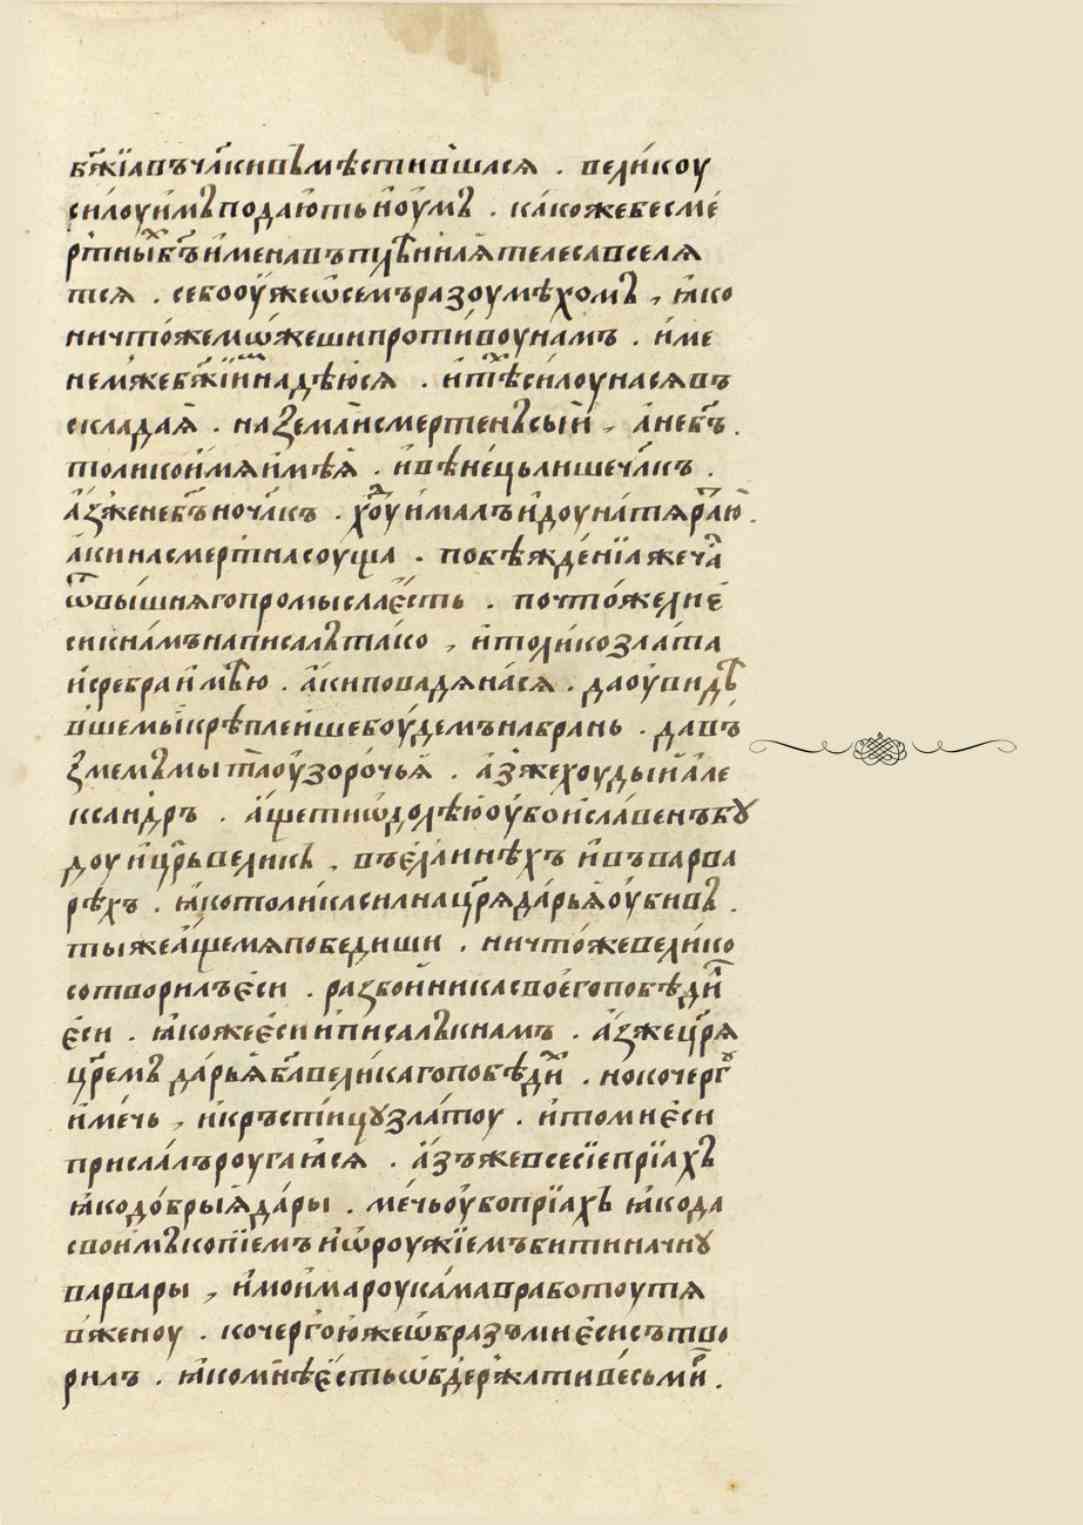 бж҃їа въ чл҃кивъ мѣстившася . вели́коу
си́лоу и́мъ пода́ють и҆ оу́мъ . ка́ко же бесме́
ртны́х бг҃ъ и́мена въ тлѣ́нная телеса вселя
тся . се бо оу҆же ѡ҆ семъ разоумѣхомъ , ꙗ҆ко
ничто́же мѡ́жеши проти́воу на́мъ . и́ме
нем же бж҃їим надѣю́ся . и҆ тѣ́х си́лоу на ся въ
складая . на земли́ смертенъ сы́й , а҆ не бг҃ъ .
толико и́мя и҆мѣя . и҆ вѣне́ць лише чл҃къ .
а҆́з же не бг҃ъ но чл҃къ . ход́оу имамъ и҆доу на́ тя ра́тїю .
а҆́ки на сме́ртна соуща . побѣжде́нїа же ча́
ѿ вы́шняго промысла є҆́сть . почто́ же лн є҆
си к на́мъ написалъ та́ко , и҆ толи́ко зла́та
и҆ сребра и҆мѣ́ю . а҆́ки повадя на́ ся . да оу҆видѣ
вшемы и҆ крѣплеише боу́демъ на брань . да въ́
змемъ мы та́ оу҆зоро́чья . а҆́з же хоуды́й а҆ле
ксандръ . а҆́ще ти ѡ҆долѣю оу҆́бо и҆ сла́венъ бꙋ
доу и҆ цр҃ь великъ . въ є҆́линѣхъ и҆ въ варва
рѣхъ . ꙗ҆́ко толи́ка силна цр҃я да́рья оу҆бивъ .
ты же а҆́ще мя победиши . ничто́же вели́ко
сотворилъ є҆си . разбойника своего побѣди́л
є҆си . ꙗ҆коже є҆си и҆ писалъ к намъ . а҆́з же цр҃я
цр҃емъ да́рья бг҃а вели́каго побѣди́х . но кочергꙋ
и҆ ме́чь , и҆ кръспи́цꙋ зла́тоу . и҆ то мн є҆си
присла́лъ роуга́ꙗся . а҆́зъ же все сїе прїахъ
ꙗ҆ко до́брыя да́ры . ме́чь оу҆́бо прїахъ ꙗ҆ко да
свои́мъ копїемъ и҆ ѡ҆роужїемъ бити начнꙋ
варвары , и҆ мои́ма роука́ма в работоу тя
в́женоу . кочерго́ю же ѡ҆бразъ мн є҆си сътво
рилъ . ꙗ҆ко мнѣ є҆́сть ѡ҆бдержати ве́сь ми́р .